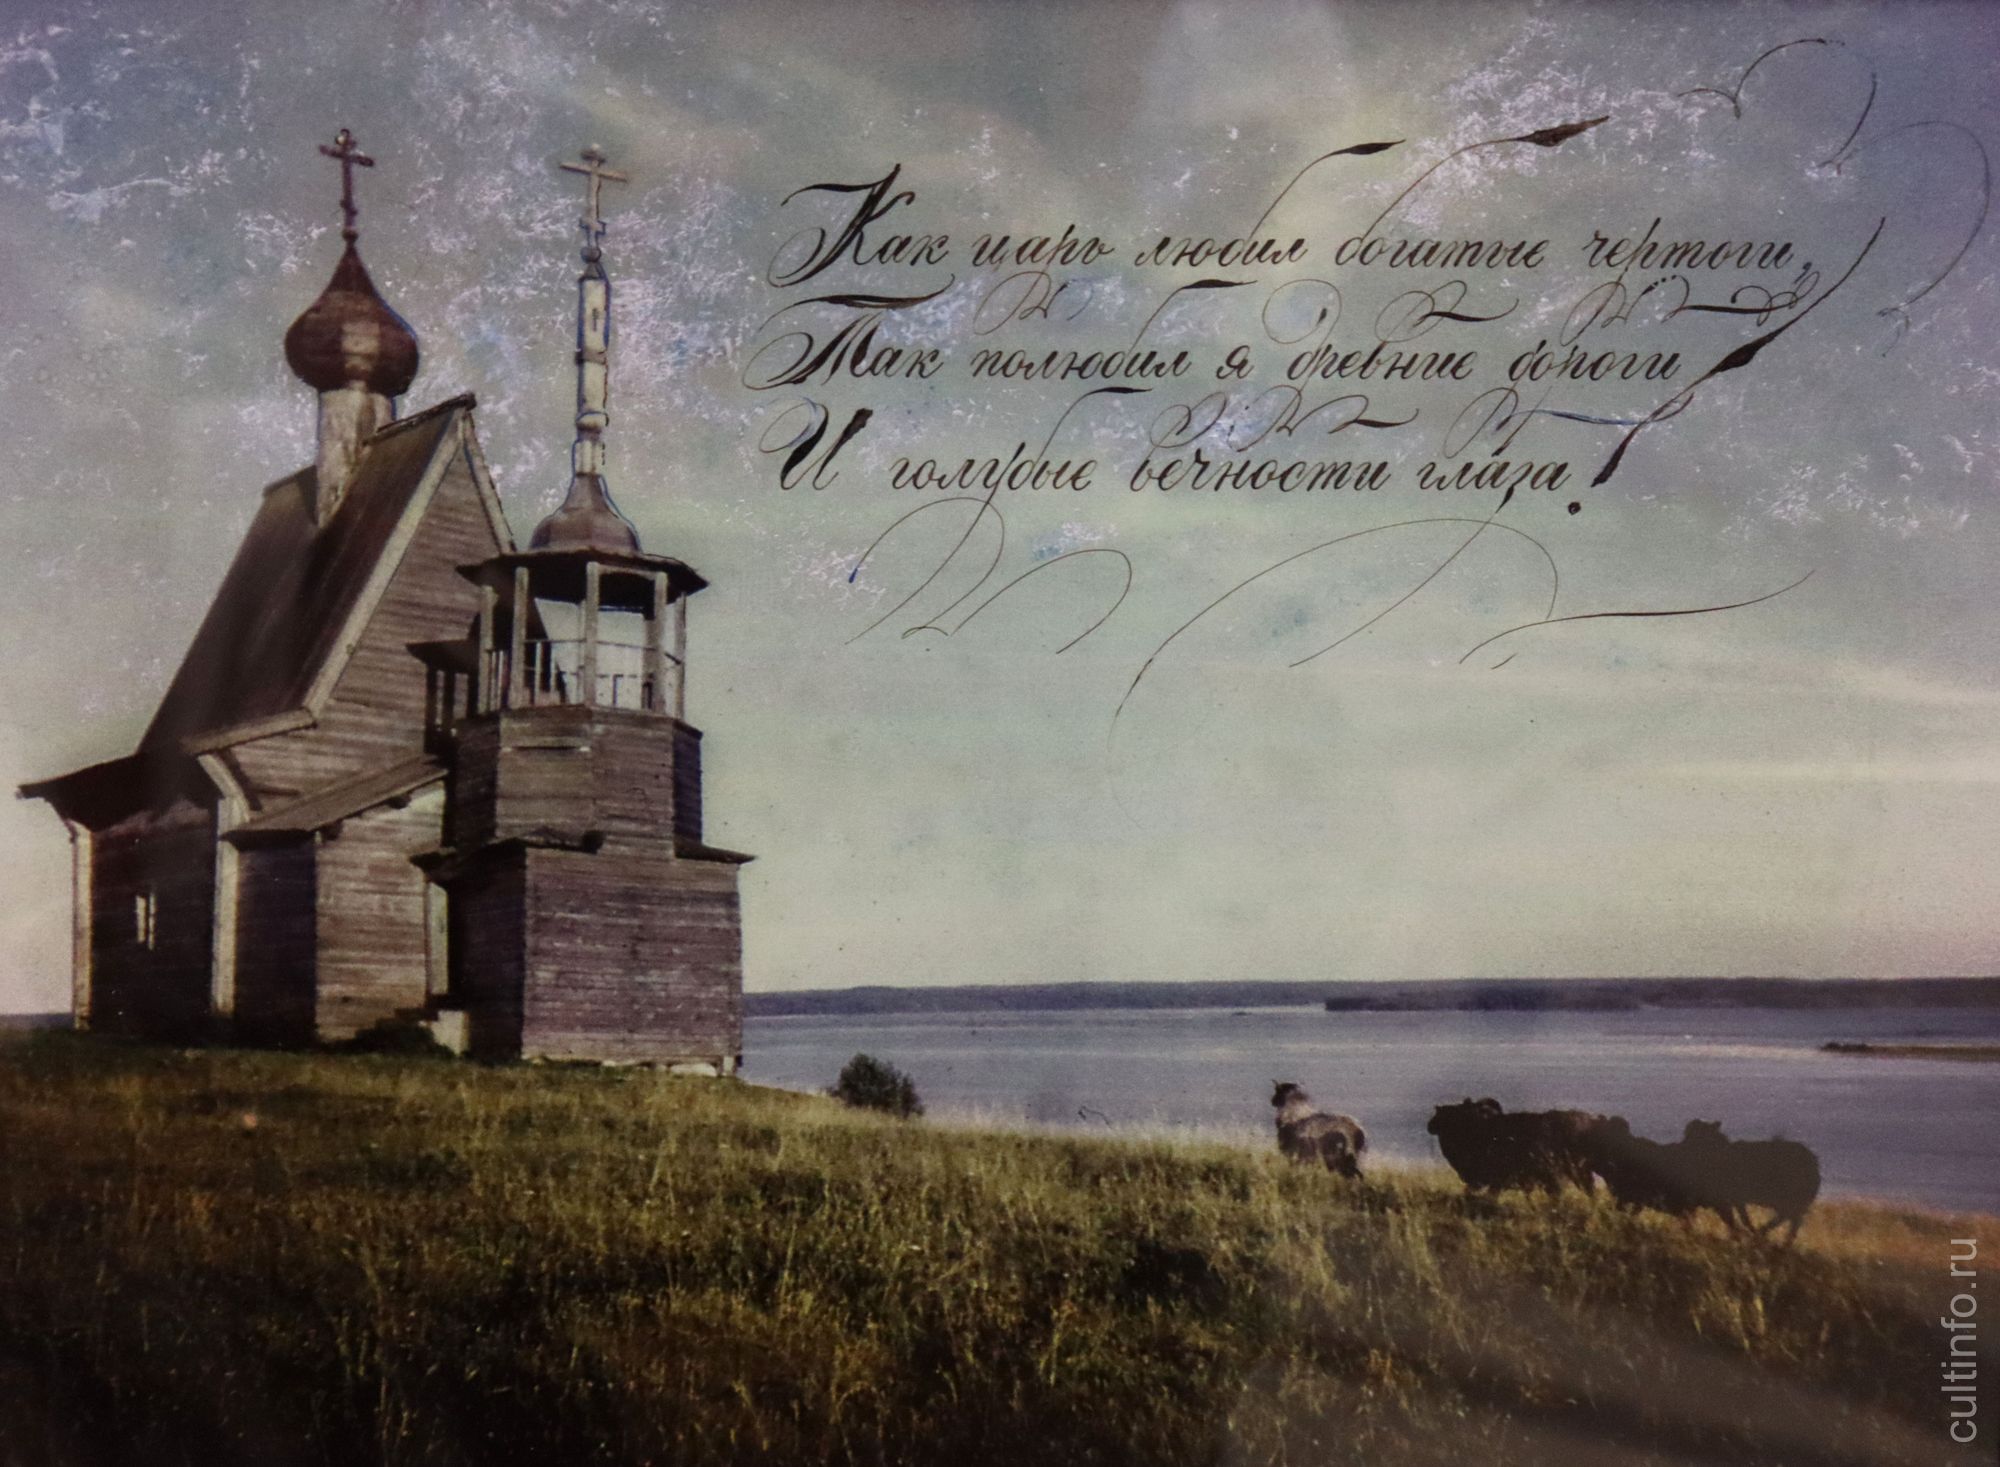 Как царь любил богатые чертоги,
Так полюбил я древние дороги
И голубые вечности глаза!
cultinfo.ru